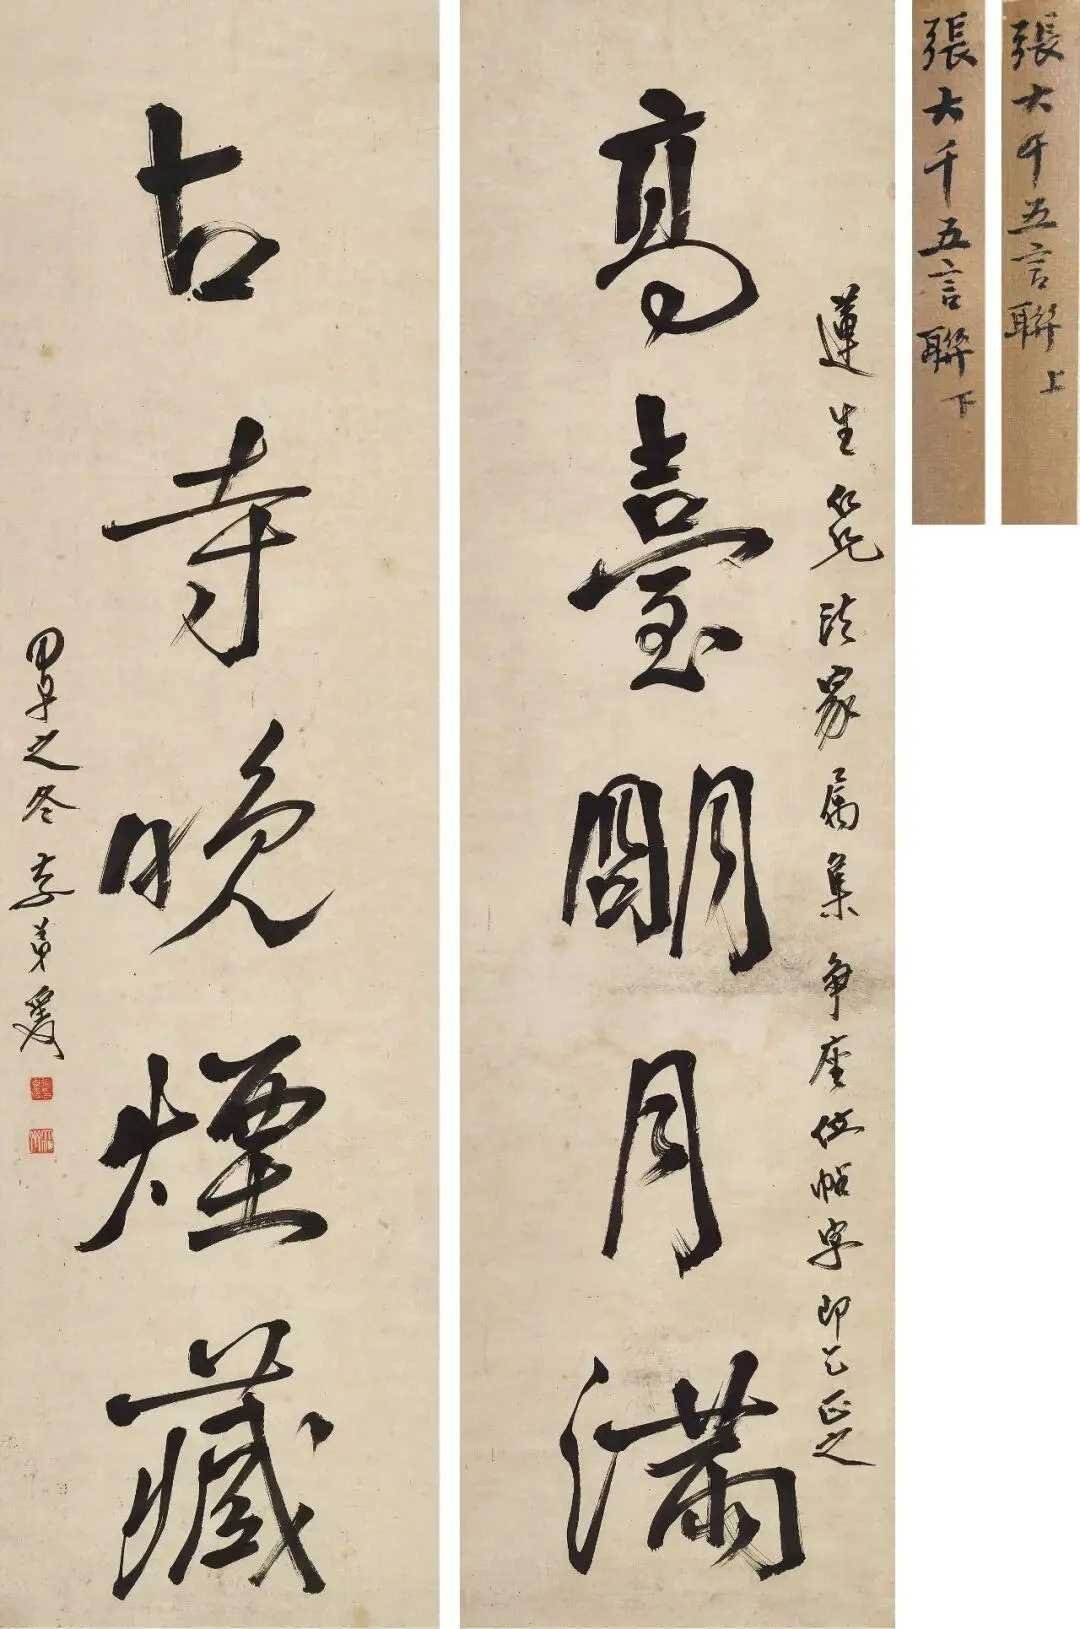 張大千五言聯 上
張大千五言聯 下
蓮生仁兄法家屬集爭座位帖字即乞正之
高臺朙月滿
古寺晚煙藏
甲子之冬 弟爰